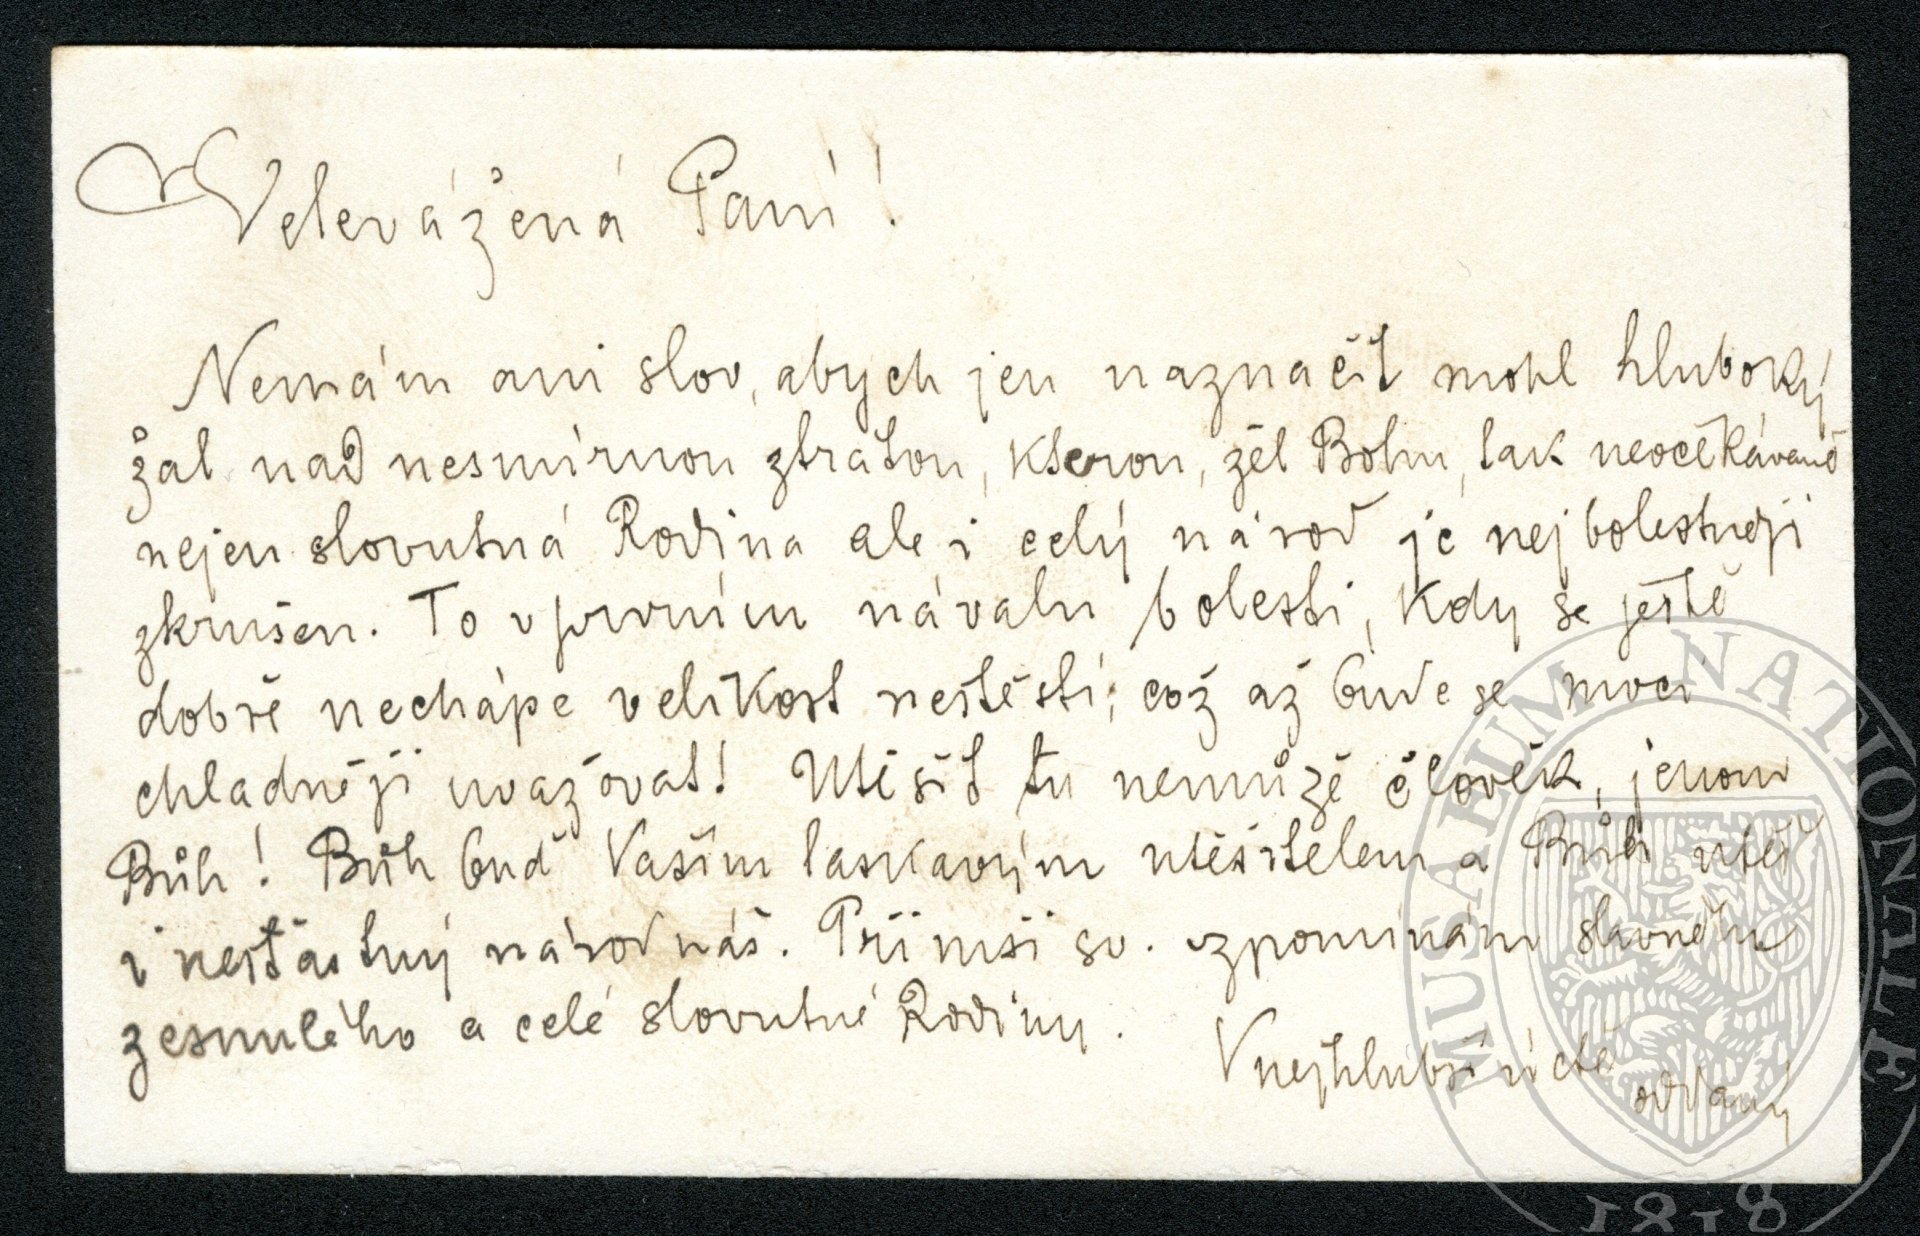 Velevážená Paní!
Nemám ani slov, abych jen naznačit mohl hluboký
žal nad nesmírnou ztrátou, kterou, žel Bohu, tak neočekávaně
nejen slovutná Rodina ale i celý národ je nejbolestněji
zkrušen. To v prvním návalu bolesti, kdy se ještě
dobře nechápe velikost neštěstí; což až bude se moci
chladněji uvažovat! Utěšit tu nemůže člověk, jenom
Bůh! Bůh buď Vaším laskavým utěšitelem a Bůh utěš
i nešťastný národ náš. Při mši sv. vzpomínám slavného
zesnulého a celé slovutné Rodiny.
V nejhlubší úctě
oddaný
MUSAEUM NATIONALE
1818